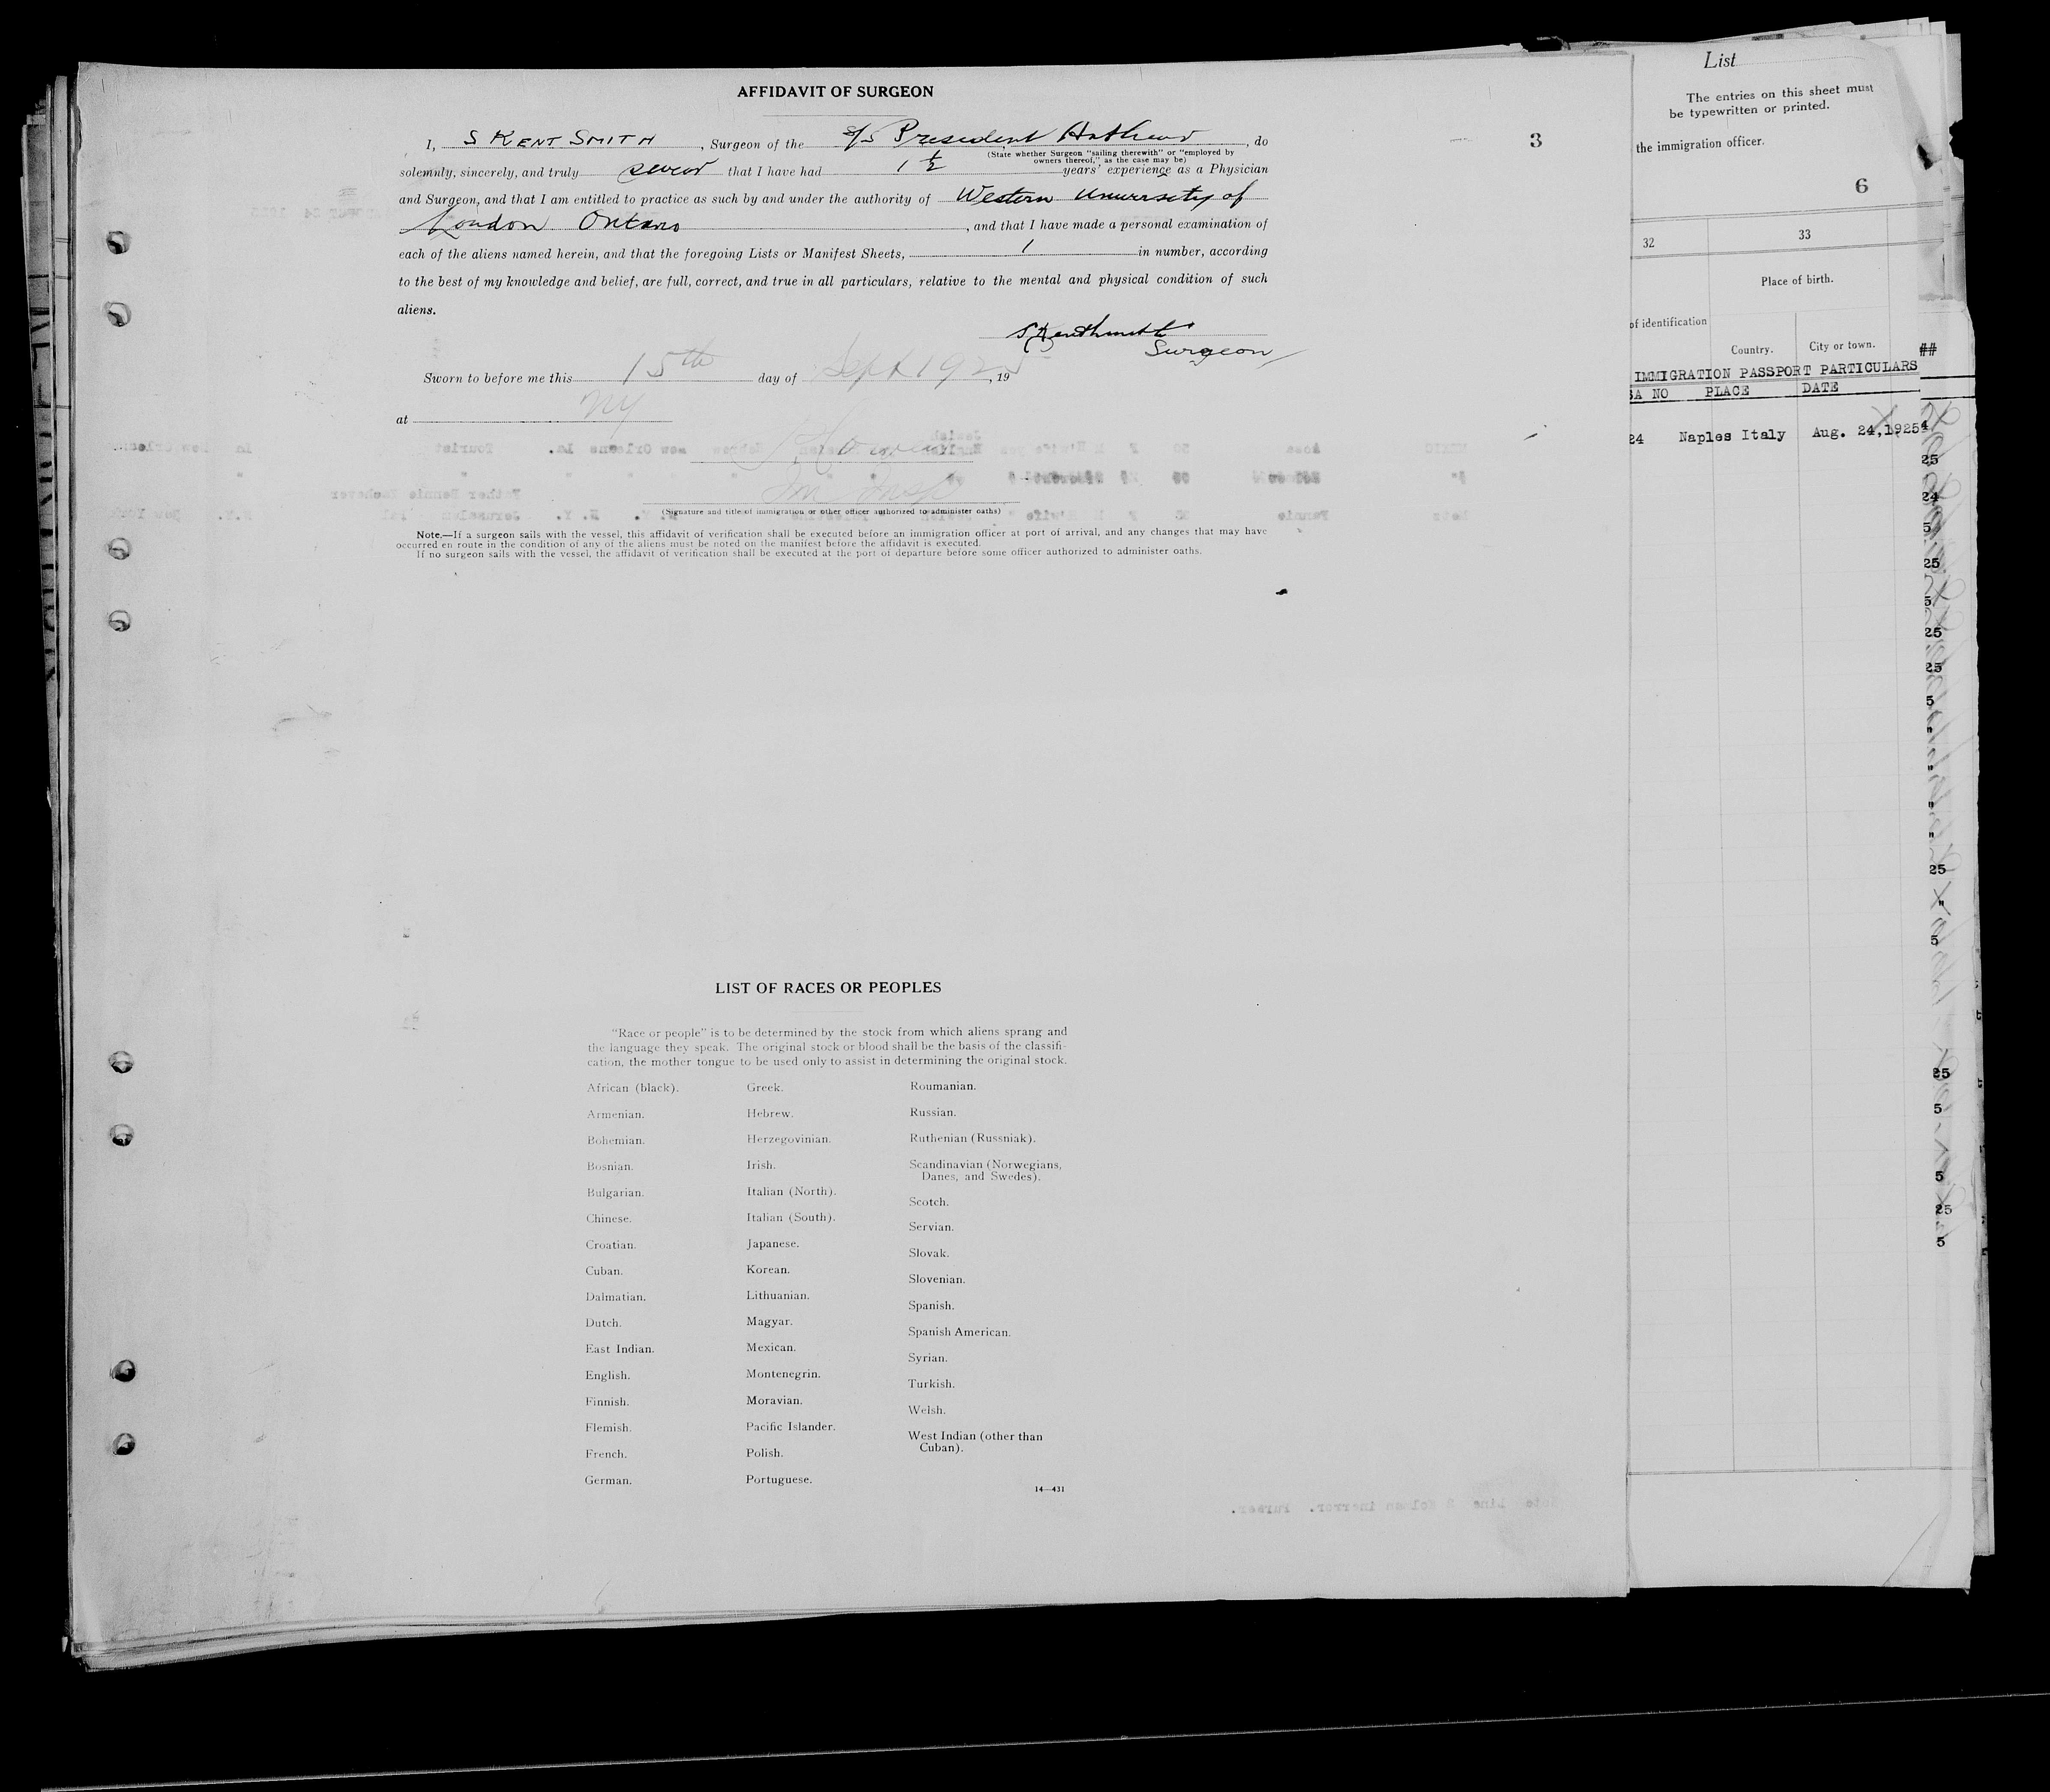 AFFIDAVIT OF SURGEON
I, S KENT SMITH, Surgeon of the S/S President, do
(State whether Surgeon "sailing therewith" or "employed by
owners thereof," as the case may be)
solemnly, sincerely, and truly swear that I have had 1 ½ years' experience as a Physician
and Surgeon, and that I am entitled to practice as such by and under the authority of Western University of
London Ontario, and that I have made a personal examination of
each of the aliens named herein, and that the foregoing Lists or Manifest Sheets, 1 in number, according
to the best of my knowledge and belief, are full, correct, and true in all particulars, relative to the mental and physical condition of such
aliens.
S Kent Smith
Surgeon
Sworn to before me this 15th day of Sept 1925, 19
at NY
Imm Insp
(Signature and title of immigration or other officer authorized to administer oaths)
Note.—If a surgeon sails with the vessel, this affidavit of verification shall be executed before an immigration officer at port of arrival, and any changes that may have
occurred en route in the condition of any of the aliens must be noted on the manifest before the affidavit is executed.
If no surgeon sails with the vessel, the affidavit of verification shall be executed at the port of departure before some officer authorized to administer oaths.
3
LIST OF RACES OR PEOPLES
"Race or people" is to be determined by the stock from which aliens sprang and
the language they speak. The original stock or blood shall be the basis of the classifi-
cation, the mother tongue to be used only to assist in determining the original stock.
African (black).
Armenian.
Bohemian.
Bosnian.
Bulgarian.
Chinese.
Croatian.
Cuban.
Dalmatian.
Dutch.
East Indian.
English.
Finnish.
Flemish.
French.
German.
Greek.
Hebrew.
Herzegovinian.
Irish.
Italian (North).
Italian (South).
Japanese.
Korean.
Lithuanian.
Magyar.
Mexican.
Montenegrin.
Moravian.
Pacific Islander.
Polish.
Portuguese.
Roumanian.
Russian.
Ruthenian (Russniak).
Scandinavian (Norwegians,
Danes, and Swedes).
Scotch.
Servian.
Slovak.
Slovenian.
Spanish.
Spanish American.
Syrian.
Turkish.
Welsh.
West Indian (other than
Cuban).
14—431
List
The entries on this sheet must
be typewritten or printed.
the immigration officer.
6
32
33
Place of birth.
of identification
Country.
City or town.
##
IMMIGRATION PASSPORT PARTICULARS
SA NO PLACE DATE
24 Naples Italy Aug. 24,1925
25
24
5
25
5
25
25
5
"
"
"
"
25
"
5
25
5
5
25
5